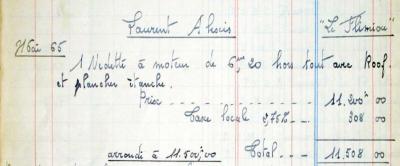 Laurent Alexis "Le Flimiou"
Mai 66
1 Vedette à moteur de 6m,20 hors tout avec Roof.
et plancher étanche.
Prix - - - - - - - - 11.200 00
Taxe locale 2,75% - - 308 00
arrondi à 11.500,00 Total - - - 11.508 00